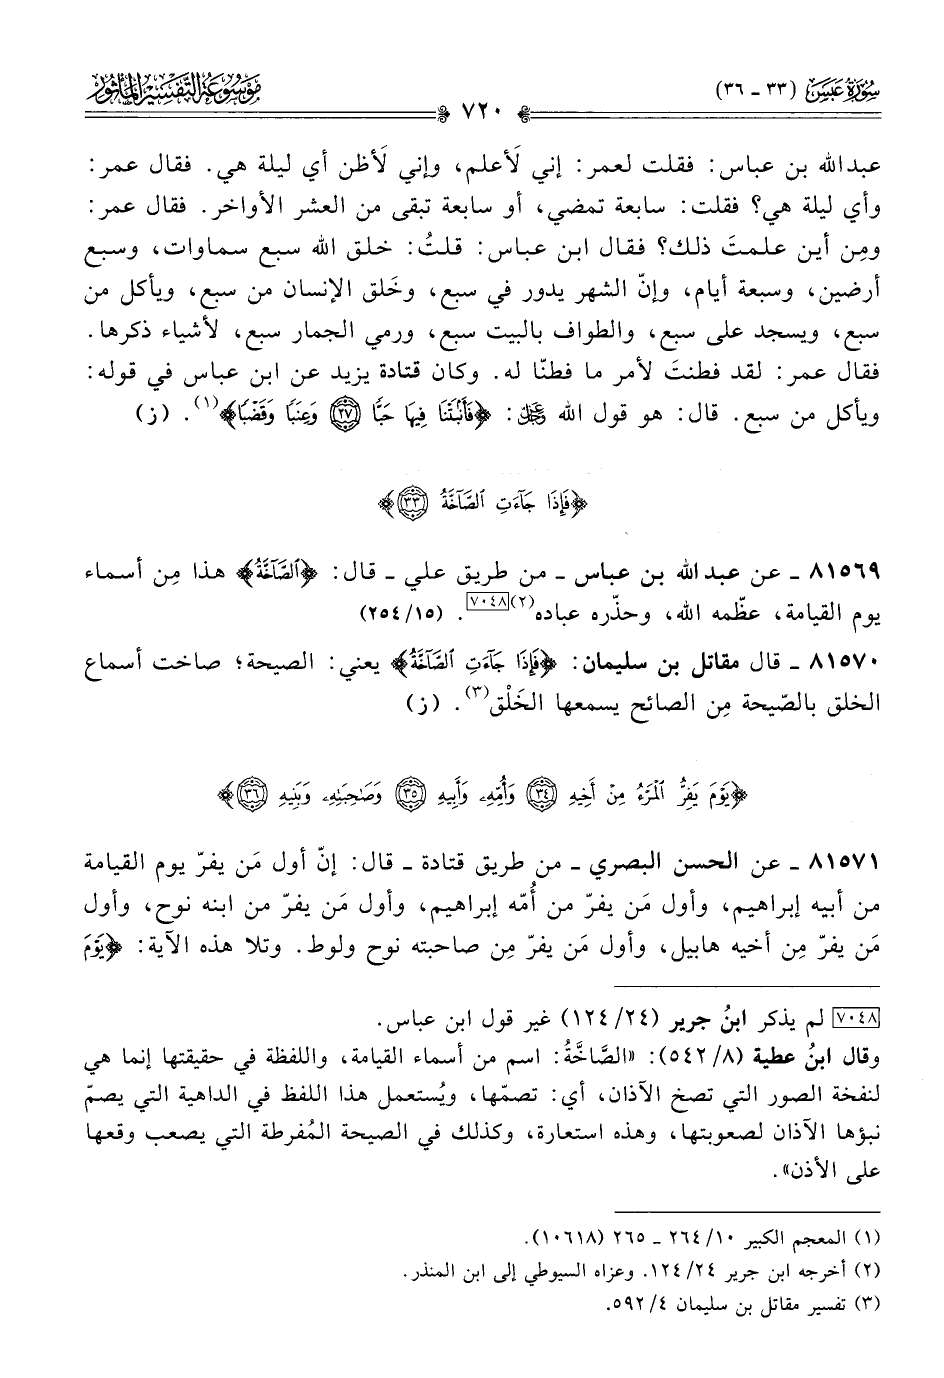 سُورَةُ عَبَسَ (٣٣ - ٣٦)
٧٢٠
مَوْسُوعَةُ التَّفْسِيرِ المَأْثُورِ
عبدالله بن عباس: فقلت لعمر: إني لَأعلم، وإني لَأظن أي ليلة هي. فقال عمر:
وأي ليلة هي؟ فقلت: سابعة تمضي، أو سابعة تبقى من العشر الأواخر. فقال عمر:
ومِن أين علمتَ ذلك؟ فقال ابن عباس: قلتُ: خلق الله سبع سماوات، وسبع
أرضين، وسبعة أيام، وإنّ الشهر يدور في سبع، وخَلق الإنسان من سبع، ويأكل من
سبع، ويسجد على سبع، والطواف بالبيت سبع، ورمي الجمار سبع، لأشياء ذكرها.
فقال عمر: لقد فطنتَ لأمر ما فطنّا له. وكان قتادة يزيد عن ابن عباس في قوله:
ويأكل من سبع. قال: هو قول الله ﷻ: ﴿فَأَنۢبَتۡنَا فِيهَا حَبّٗا ٢٧ وَعِنَبٗا وَقَضۡبٗا﴾(١). (ز)
﴿فَإِذَا جَآءَتِ ٱلصَّآخَّةُ ٣٣﴾
٨١٥٦٩ - عن عبدالله بن عباس - من طريق علي - قال: ﴿ٱلصَّآخَّةُ﴾ هذا مِن أسماء
يوم القيامة، عظّمه الله، وحذّره عباده(٢)[٧٠٤٨]. (١٥/٢٥٤)
٨١٥٧٠ - قال مقاتل بن سليمان: ﴿فَإِذَا جَآءَتِ ٱلصَّآخَّةُ﴾ يعني: الصيحة؛ صاخت أسماع
الخلق بالصّيحة مِن الصائح يسمعها الخَلْق(٣). (ز)
﴿يَوۡمَ يَفِرُّ ٱلۡمَرۡءُ مِنۡ أَخِيهِ ٣٤ وَأُمِّهِۦ وَأَبِيهِ ٣٥ وَصَٰحِبَتِهِۦ وَبَنِيهِ ٣٦﴾
٨١٥٧١ - عن الحسن البصري - من طريق قتادة - قال: إنّ أول مَن يفرّ يوم القيامة
من أبيه إبراهيم، وأول مَن يفرّ من أُمّه إبراهيم، وأول مَن يفرّ من ابنه نوح، وأول
مَن يفرّ مِن أخيه هابيل، وأول مَن يفرّ مِن صاحبته نوح ولوط. وتلا هذه الآية: ﴿يَوۡمَ
[٧٠٤٨] لم يذكر ابنُ جرير (٢٤/١٢٤) غير قول ابن عباس.
وقال ابنُ عطية (٨/٥٤٢): «الصَّاخَّةُ: اسم من أسماء القيامة، واللفظة في حقيقتها إنما هي
لنفخة الصور التي تصخ الآذان، أي: تصمّها، ويُستعمل هذا اللفظ في الداهية التي يصمّ
نبؤها الآذان لصعوبتها، وهذه استعارة، وكذلك في الصيحة المُفرطة التي يصعب وقعها
على الأذن».
(١) المعجم الكبير ١٠/٢٦٤ - ٢٦٥ (١٠٦١٨).
(٢) أخرجه ابن جرير ٢٤/١٢٤. وعزاه السيوطي إلى ابن المنذر.
(٣) تفسير مقاتل بن سليمان ٤/٥٩٢.